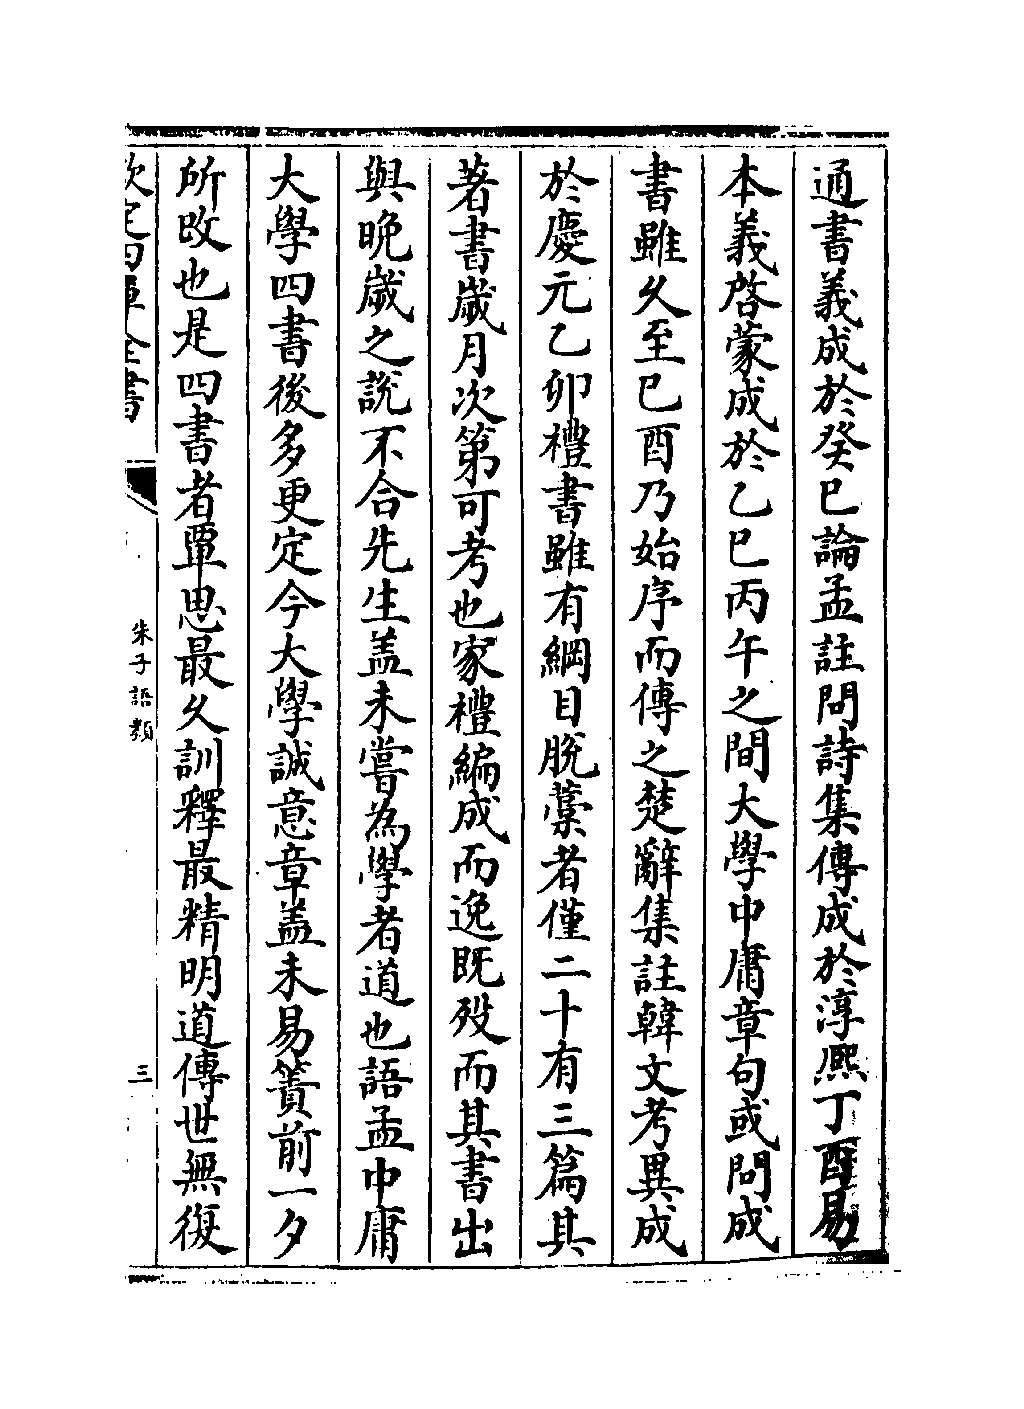 通書義成於癸巳論孟註問詩集傳成於淳熈丁酉易
本義啓蒙成於乙巳丙午之間大學中庸章句或問成
書雖久至巳酉乃始序而傳之楚辭集註韓文考異成
於慶元乙卯禮書雖有綱目脫藁者僅二十有三篇其
著書歲月次第可考也家禮編成而逸既歿而其書出
與晚歲之說不合先生盖未嘗為學者道也語孟中庸
大學四書後多更定今大學誠意章盖未易簀前一夕
所改也是四書者覃思最久訓釋最精明道傳世無復
欽定四庫全書
朱子語類
三